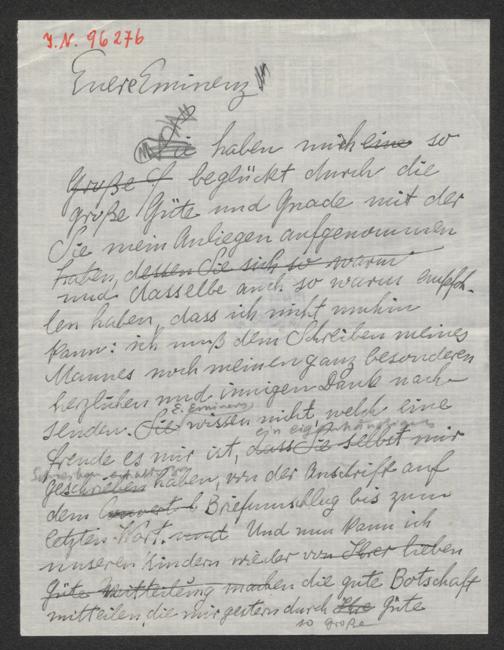 I.N. 96276
Euere Eminenz
Sie haben mich eine so
Große beglückt durch die
große Güte und Gnade mit der
Sie mein Anliegen aufgenommen
haben, dessen Sie sich so warm
und dasselbe auch so warm empfoh-
len haben, dass ich nicht umhin
kann: ich muß dem Schreiben meines
Mannes noch meinen ganz besonderen
herzlichen und innigen Dank nach-
senden. Sie wissen nicht, welch eine
E. Eminenz
Freude es mir ist, dass Sie selbst mir
ein eigenhändiges
Schreiben erhalten zu
geschrieben haben, von der Anschrift auf
dem Couvert Briefumschlag bis zum
letzten Wort. und Und nun kann ich
unseren Kindern wieder von Ihrer lieben
Güte Mitteilung machen die gute Botschaft
mitteilen, die mir gestern durch Ihre Güte
so große